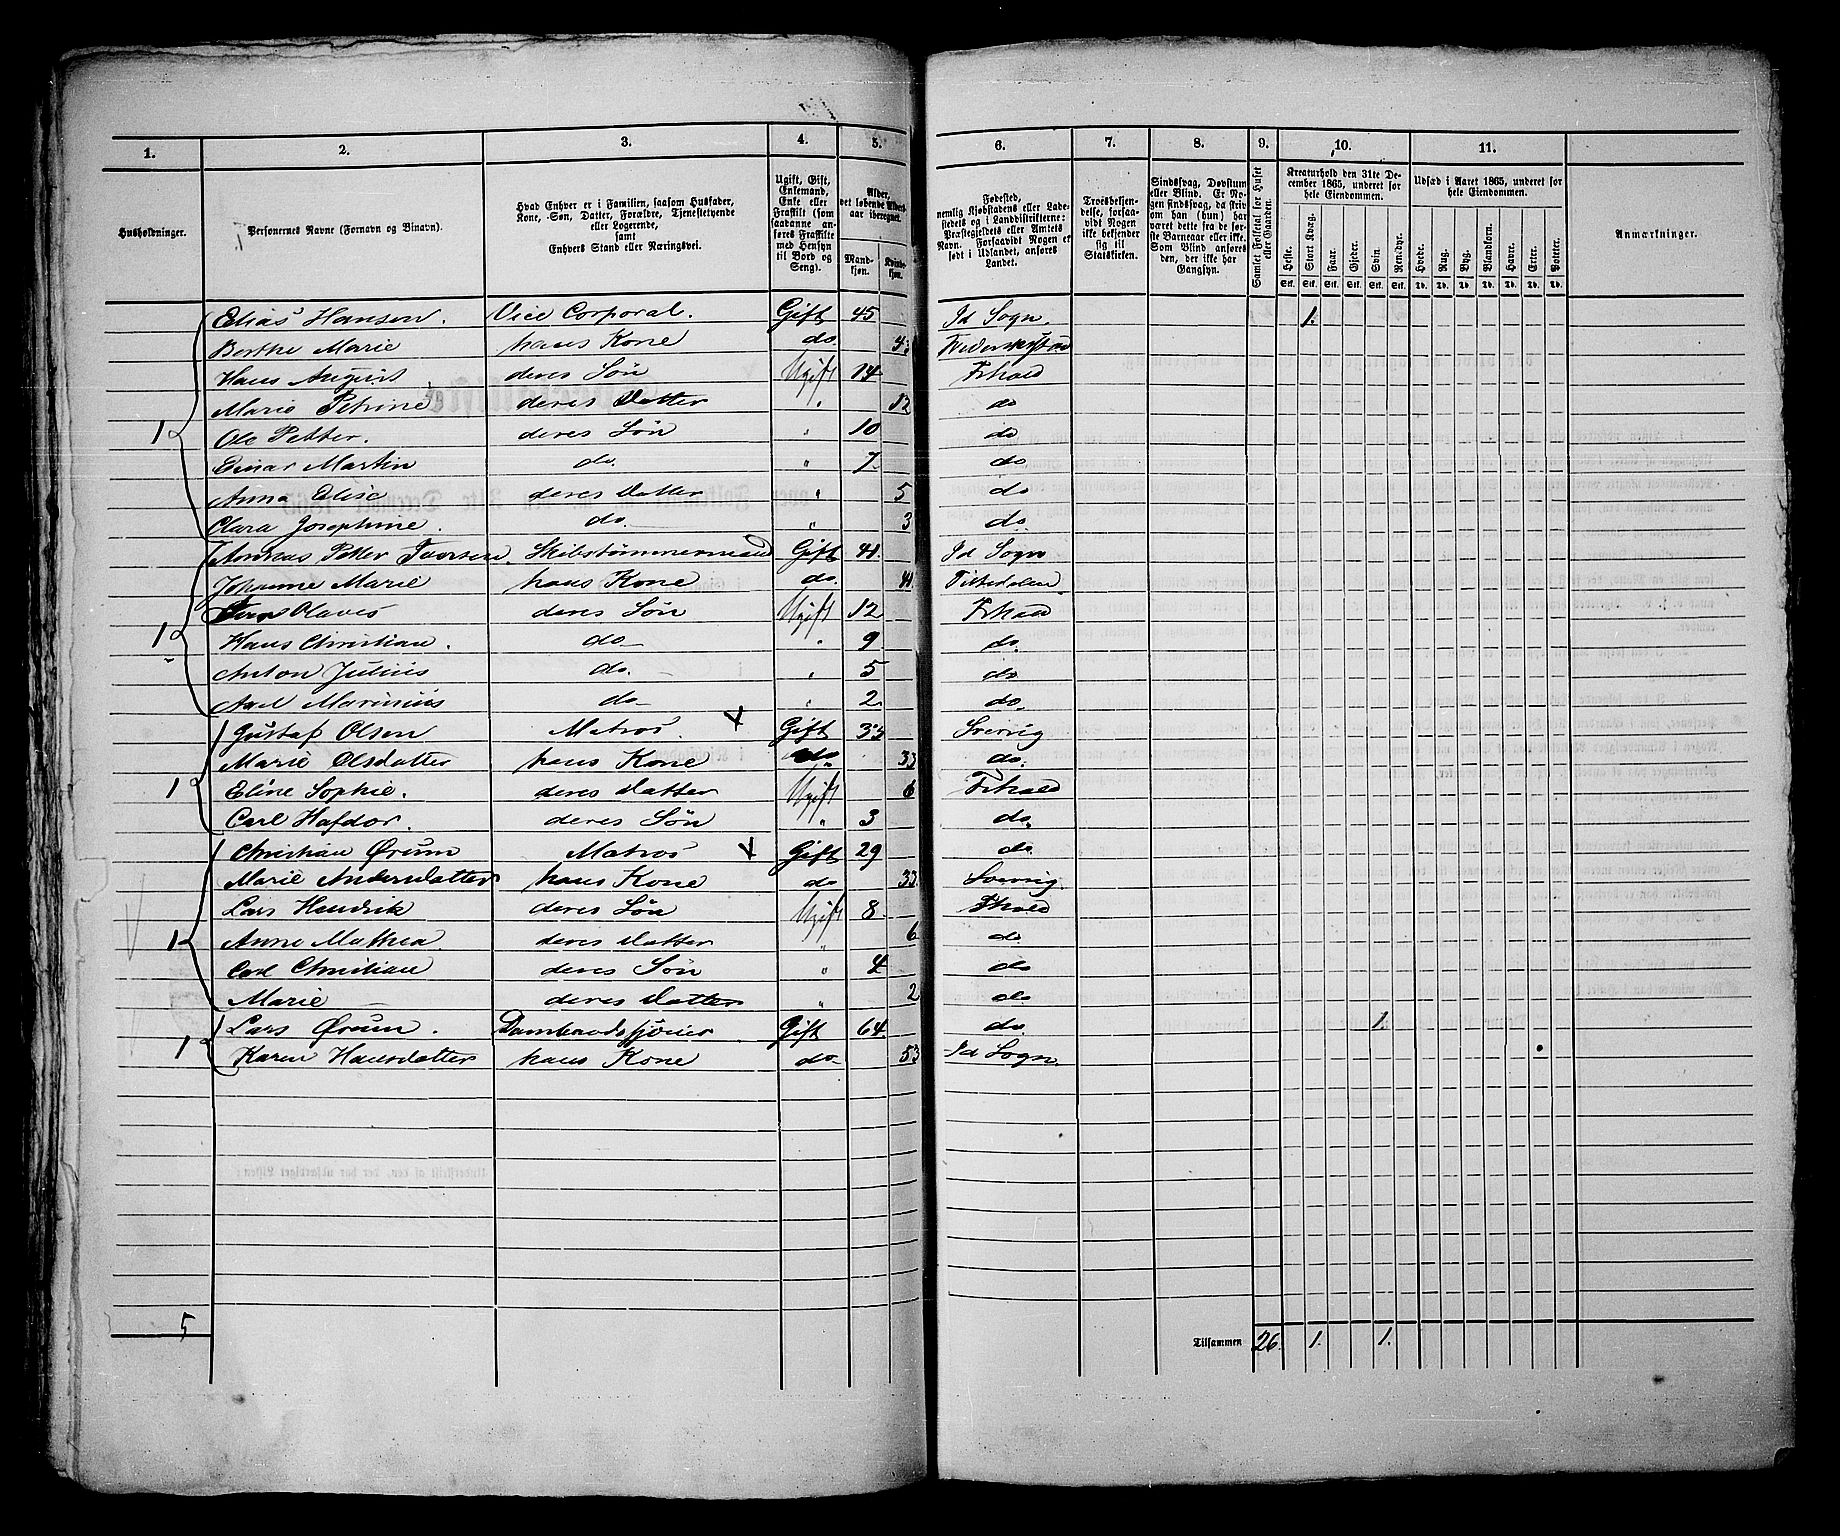 1. 2. 3. 4. 5. 6. 7. 8. 9. 10. 11.
Husholdninger.
Personernes Navne (Fornavn og Binavn).
Hvad Enhver er i Familien, saasom Husfader, Kone, Søn, Datter, Forældre, Tjenestetyende eller Logerende, samt Enhvers Stand eller Næringsvei.
Ugift, Gift, Enkemand, Enke eller Fraskilt (som saadanne anføres Fraskilte med Hensyn til Bord og Seng).
Alder, det løbende Alders-aar iberegnet.
Mand-kjøn. Kvinde-kjøn.
Fødested, nemlig Kjøbstadens eller Ladestedets og i Landdistrikterne: Præstegjeldets eller Amtets Navn. Forsaavidt Nogen er født i Udlandet, anføres Landet.
Troesbekjendelse, forsaavidt Nogen ikke bekjender sig til Statskirken.
Sindssvag, Døvstum eller Blind. Er Nogen sindssvag, da skriv om han (hun) har været dette fra de første Barneaar eller ikke. Som Blind anføres den, der ikke har Gangsyn.
Samlet Folketal for Huset eller Gaarden.
Kreaturhold den 31te December 1865, underet for hele Eiendommen.
Heste. Stort Kvæg. Faar. Gjeder. Svin. Rensdyr.
Stk. Stk. Stk. Stk. Stk. Stk.
Udsæd i Aaret 1865, underet for hele Eiendommen.
Hvede. Rug. Byg. Blandkorn. Havre. Erter. Poteter.
Td. Td. Td. Td. Td. Td. Td.
Anmærkninger.
Elias Hansen. Vice Corporal. Gift 45 Id Sogn. 1.
Berthe Marie hans Kone do.
Hans August deres Søn Ugift 14 Frhald
Marie Petrine deres Datter " 12 do
1 Ole Petter. deres Søn " 10 do
Einar Martin do. " 7 do
Anna Elise deres Datter " 5 do
Clara Josephine. do. " 3 do
Andreas Petter Skibstømmermand Gift 41. Id Sogn
Johanne Marie hans Kone do. 41 Tistedalen
Olaves deres Søn Ugift 12 Frhald
1 Hans Christian. do " 9 do.
Anton Julius do. " 5 do
Axel Marinius do " 2 do.
Gustaf Olsen Matros. X Gift Sverrig
Marie Olsdatter hans Kone do. 33 do.
1 Eline Sophie. deres Datter Ugift 6 Frhald
Carl Hafdor. deres Søn " 3 do.
Christian Ørum Matros X Gift 29 do.
Marie Andersdatter hans Kone do 33 Sverrig
Lars Hendrik deres Søn Ugift 8 Fhald
1 Anne Mathea deres Datter " 6 do
Carl Christian deres Søn " 4 do
Marie deres Datter " 2 do
Lars Ørum. Gift 64 do. 1.
1 Karen Hansdatter hans Kone do. 53 Id Sogn.
5 Tilsammen 26. 1. 1.